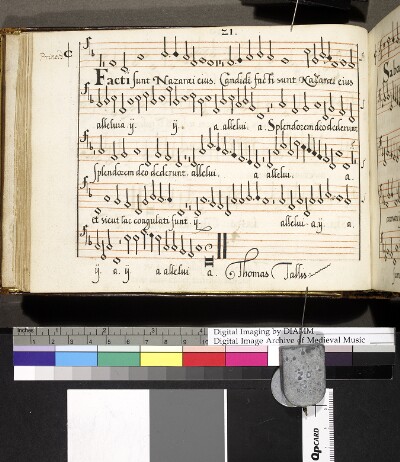 21.
Facti sunt Nazarei eius. Candidi facti sunt Nazarei eius
alleluia ij. ij. a. allelui. a. Splendorem deo dederunt
splendorem deo dederunt. allelui. a allelui. a.
et sicut lac coagulati sunt. ij. allelui. a. ij. a.
ij. a. ij a allelui a. Thomas Tallis
Inches
Digital Imaging by DIAMM
Digital Image Archive of Medieval Music
QPCARD